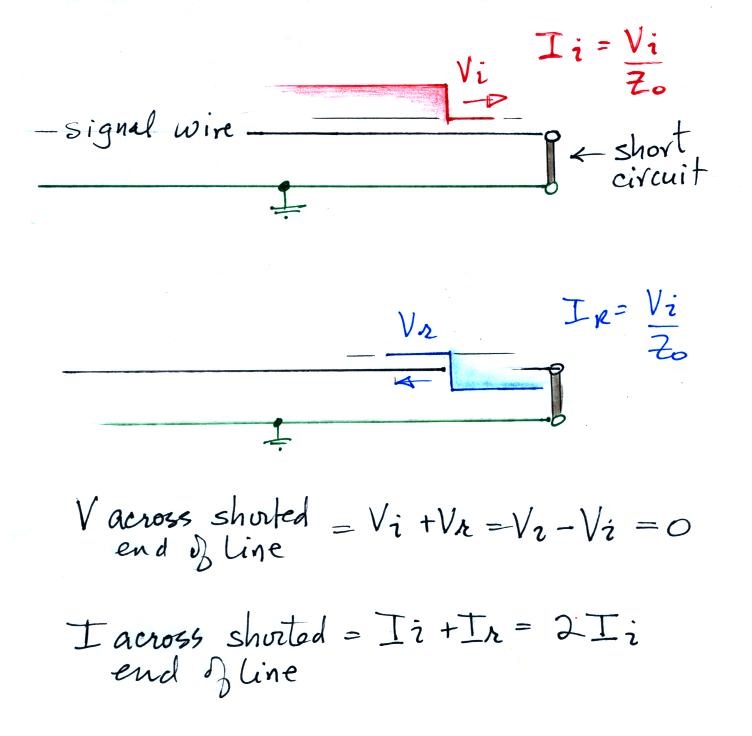 Vi
Ii = Vi/Zo
signal wire
← short circuit
Vr
IR = Vi/Zo
V across shorted end of line = Vi + Vr = Vi - Vi = 0
I across shorted end of line = Ii + Ir = 2Ii